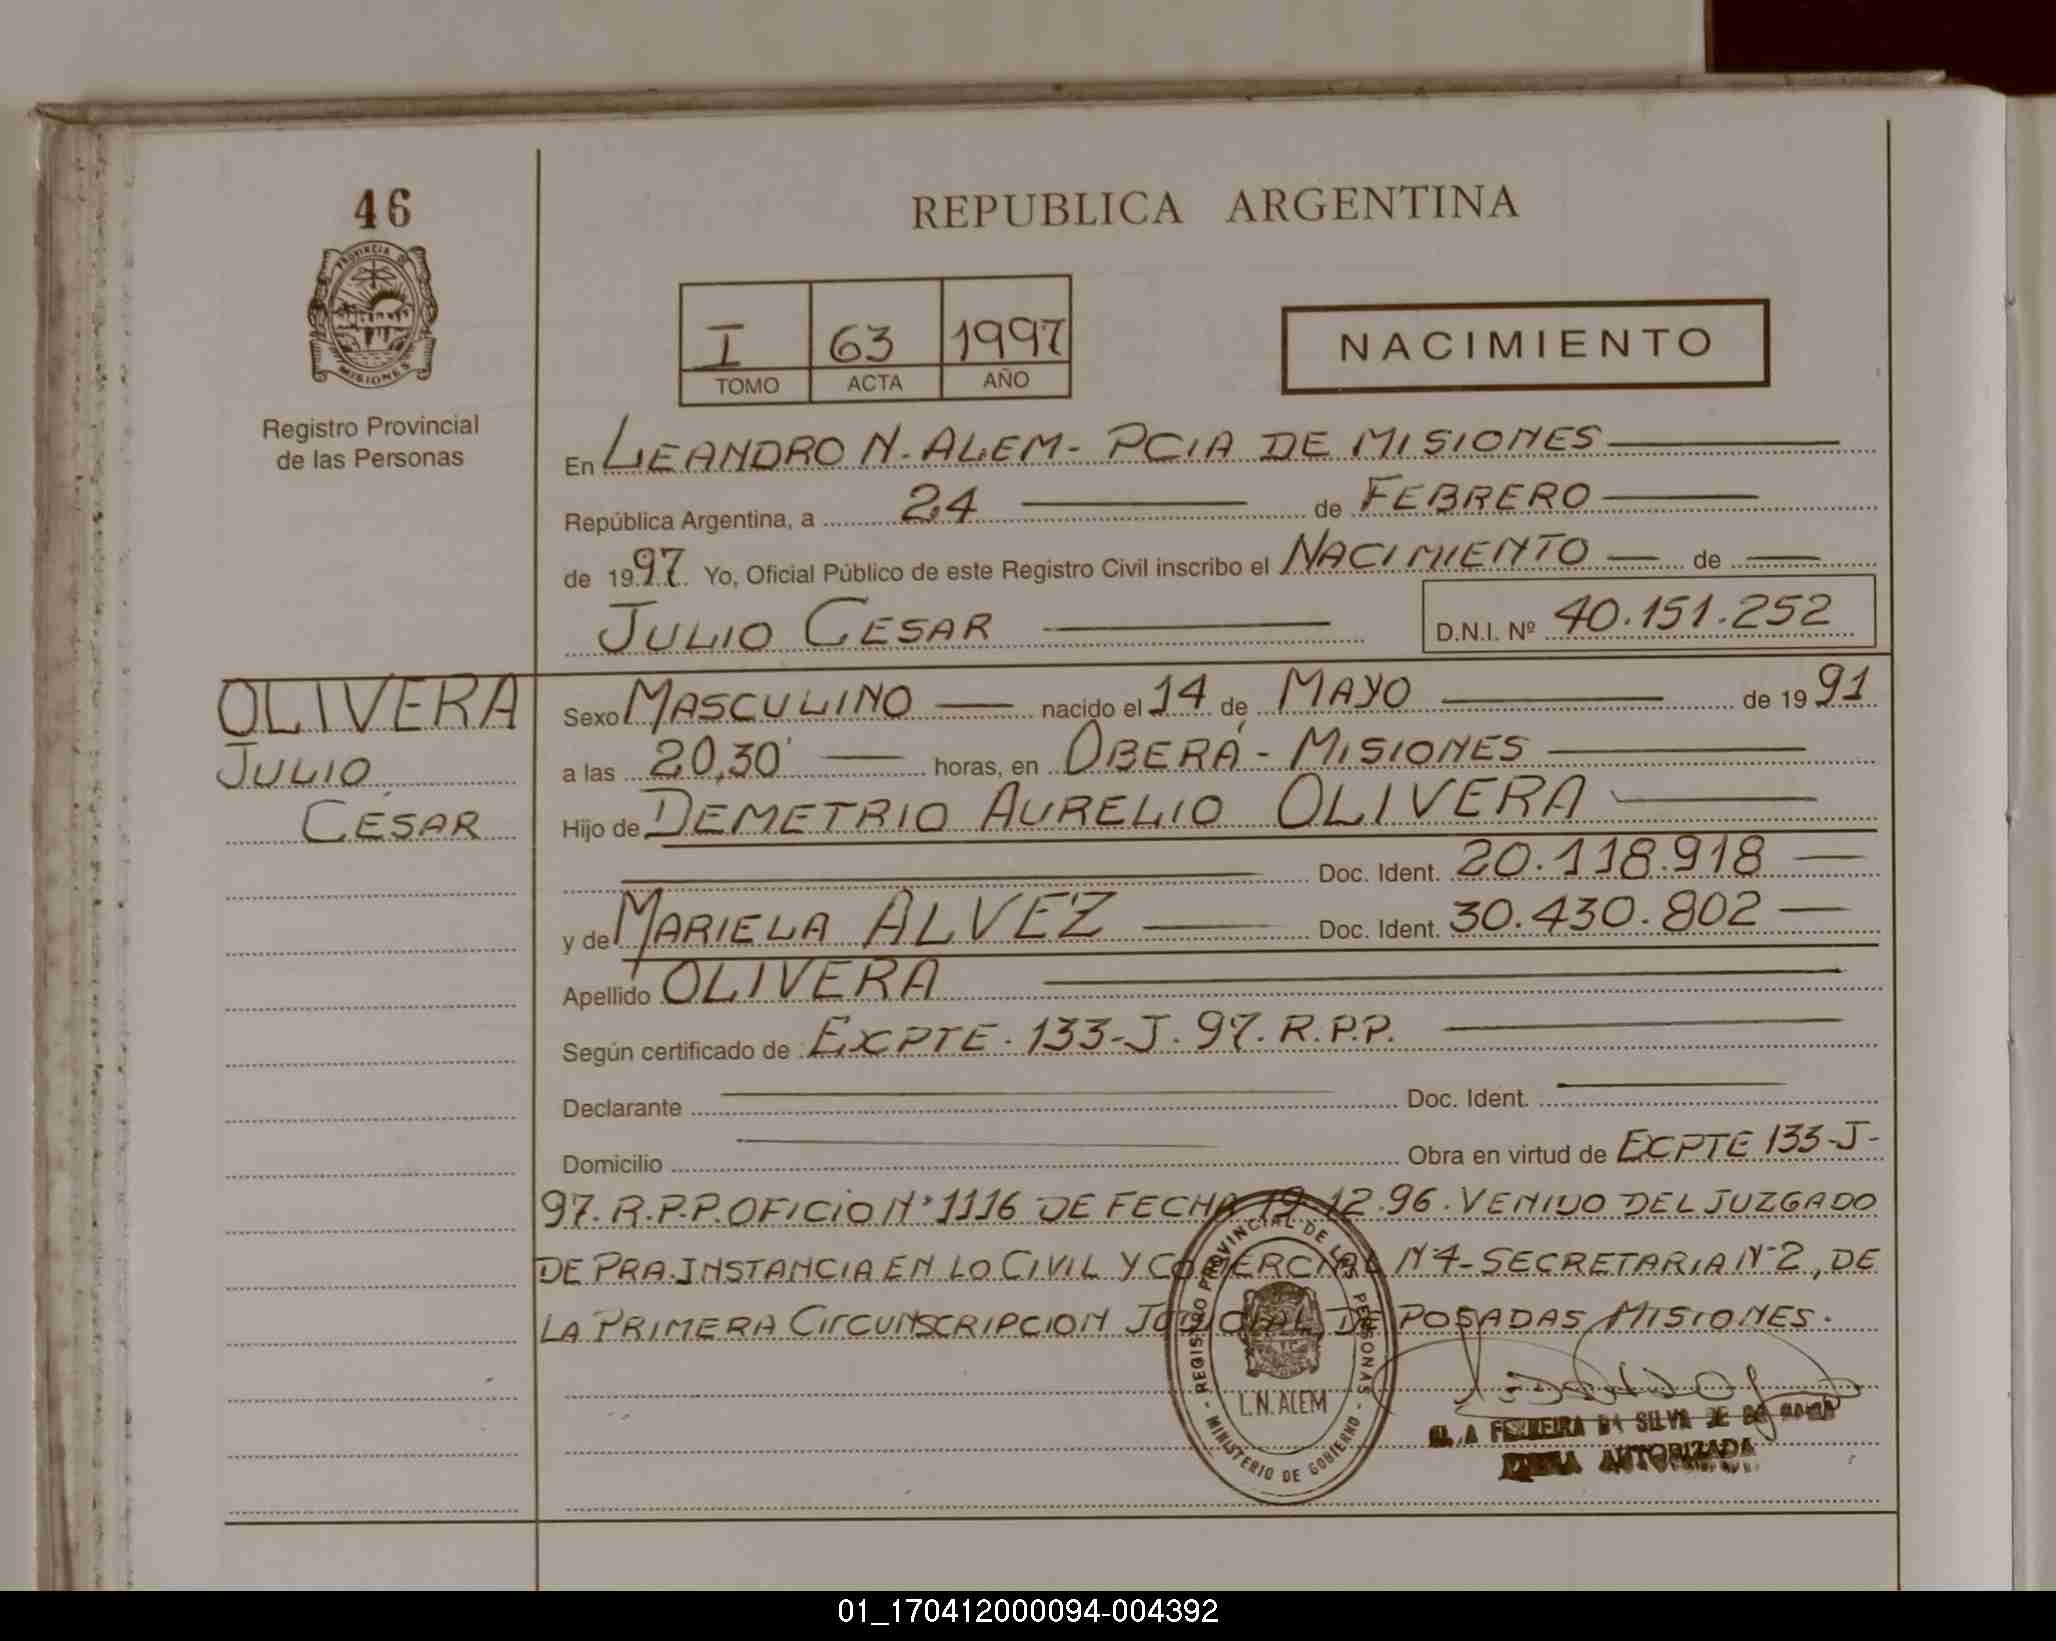 46
PROVINCIA DE
MISIONES
Registro Provincial
de las Personas
REPUBLICA ARGENTINA
I 63 1997
TOMO ACTA AÑO
NACIMIENTO
En LEANDRO N. ALEM - PCIA DE MISIONES
República Argentina, a 24 de FEBRERO
de 1997. Yo, Oficial Público de este Registro Civil inscribo el NACIMIENTO de
JULIO CESAR D.N.I. Nº 40.151.252
OLIVERA
JULIO
CÉSAR
Sexo MASCULINO nacido el 14 de MAYO de 1991
a las 20,30' horas, en OBERÁ - MISIONES
Hijo de DEMETRIO AURELIO OLIVERA
Doc. Ident. 20.118.918
y de MARIELA ALVEZ Doc. Ident. 30.430.802
Apellido OLIVERA
Según certificado de EXPTE. 133-J. 97. R.P.P.
Declarante Doc. Ident.
Domicilio Obra en virtud de EXPTE 133-J-
97. R.P.P. OFICIO Nº 1116 DE FECHA 19.12.96. VENIDO DEL JUZGADO
DE PRA. INSTANCIA EN LO CIVIL Y COMERCIAL Nº 4 - SECRETARIA Nº 2, DE
LA PRIMERA CIRCUNSCRIPCION JUDICIAL DE POSADAS MISIONES.
REGISTRO PROVINCIAL DE LAS PERSONAS
L.N. ALEM
- MINISTERIO DE GOBIERNO -
FERREIRA DA SILVA DE
FIRMA AUTORIZADA
01_170412000094-004392